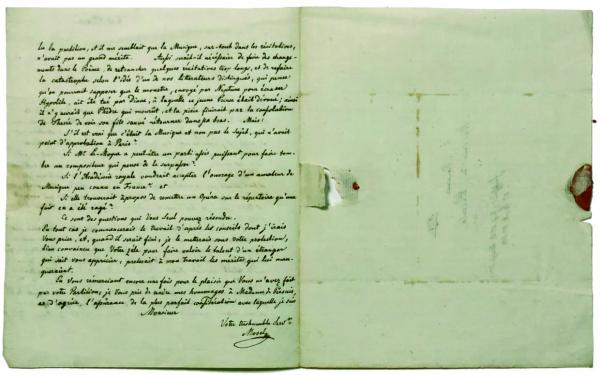 lu la partition, et il me semblait que la Musique, sur-tout dans les récitatives,
n'avait pas un grand mérite. Aussi serait-il nécessaire de faire des change-
ments dans le Poëme, de retrancher quelques récitatives trop longs, et de refaire
la catastrophe selon l'idée d'un de nos literateurs distingués, qui pense
qu'on pourrait supposer que le monstre, envoyé par Neptune pour écraser
Hypolite, ait été tué par Diane, à laquelle ce jeune Prince était dévoué; ainsi
il n'y aurait que Phèdre qui mourût, et la pièce finirait par la consolation
de Thésée de voir son fils sauvé retourner dans ses bras. Mais!
S'il est vrai que c'était la Musique et non pas le Sujet, qui n'avait
point d'approbation à Paris?
Si Mr. le Moyne a peut-être un parti assez puissant pour faire tom-
ber un compositeur qui pense de le surpasser?
Si l'Académie royale voudrait accepter l'ouvrage d'un amateur de
Musique peu connu en France? et
Si elle trouverait à propos de remettre un Opéra sur le répertoire qu'une
fois on a été rayé?
Ce sont des questions que Vous seul pouvez résoudre.
En tout cas je commencerais le travail d'après les conseils dont j'irais
Vous prier, et, quand il serait fini, je le mettrais sous votre protection,
bien convaincu que Votre zèle pour faire valoir le talent d'un étranger
qui sait vous apprécier, préterait à mon travail les mérites qui lui man-
queraient.
En Vous remerciant encore une fois pour le plaisir que Vous m'avez fait
par votre Partition, je Vous prie de mes hommages à Madame de Persuis,
et d'agréer, l'assurance de la plus parfait considération avec laquelle je suis
Monsieur
Votre très humble Servr.
Mosel